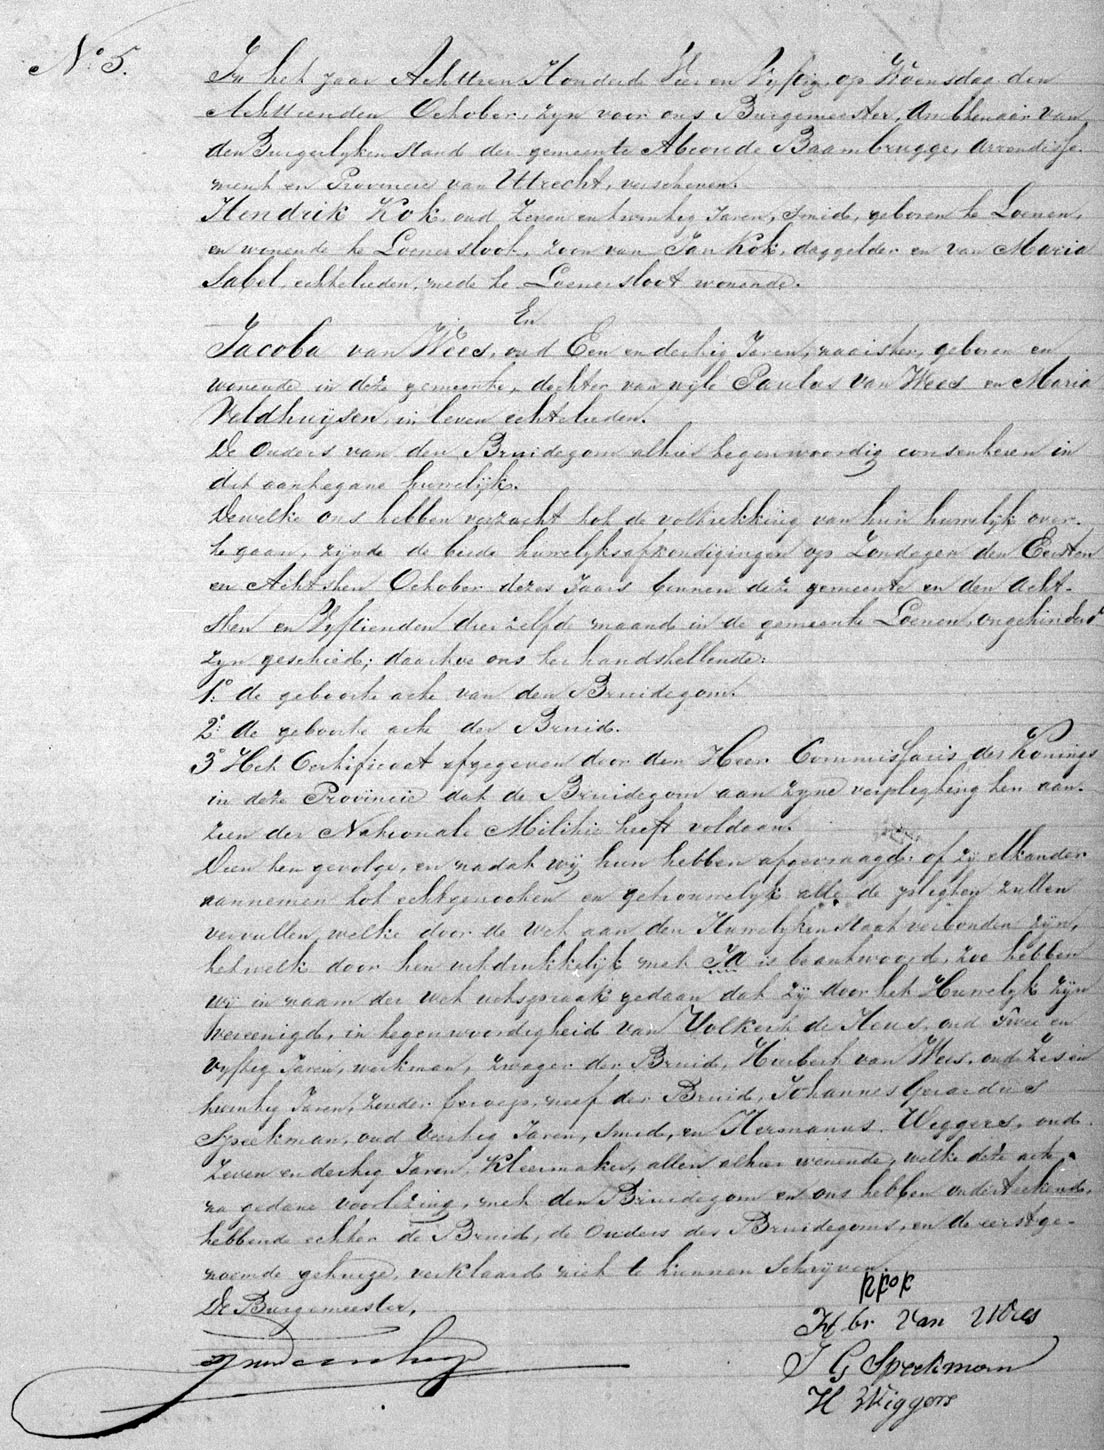 No. 5.
In het jaar Achttien Honderd Vier en Vyftig, op Woensdag den
Achttienden October, zyn voor ons Burgemeester, Ambtenaar van
den Burgerlyken Stand der gemeente Abcoude Baambrugge, Arrondisse-
ment en Provincie van Utrecht, verschenen.
Hendrik Kok, oud Zeven en twintig Jaren, Smid, geboren te Loenen,
en wonende te Loenersloot, zoon van Jan Kok, daggelder en van Maria
Sabel, echtelieden, mede te Loenersloot wonende.
En
Jacoba van Wees, oud Een en dertig Jaren, naaister, geboren en
wonende in deze gemeente, dochter van wyle Paulus van Wees en Maria
Veldhuijsen, in leven echtelieden.
De Ouders van den Bruidegom alhier tegenwoordig consenteren in
dit aantegane huwelijk.
Dewelke ons hebben verzocht tot de voltrekking van hun huwelijk over-
te gaan, zijnde de beide huwelyksafkondigingen op Zondagen den Eersten
en Achtsten October dezes Jaars binnen deze gemeente en den Acht-
sten en Vyftienden dier zelfde maand in de gemeente Loenen, ongehinderd
zyn geschied; daartoe ons ter handstellende:
1o. de geboorte acte van den Bruidegom.
2o. de geboorte acte der Bruid.
3o Het Certificaat afgegeven door den Heer Commissaris des Konings
in deze Provincie dat de Bruidegom aan zyne verpligting ten aan-
zien der Nationale Militie heeft voldaan.
Dien ten gevolge, en nadat wij hun hebben afgevraagd: of zij elkander
aannemen tot echtgenooten en getrouwelyk alle de pligten zullen
vervullen, welke door de wet aan den Huwelyken staat verbonden zijn,
hetwelk door hen uitdrukkelijk met Ja is beantwoord, zoo hebben
wij in naam der wet uitspraak gedaan dat zij door het Huwelyk zijn
vereenigd, in tegenwoordigheid van Volkert de Heus, oud Twee en
vyftig Jaren, werkman, zwager der Bruid, Huibert van Wees, oud Zes en
twintig Jaren, zonder beroep, neef der Bruid, Johannes Gerardus
Speekman, oud Veertig Jaren, Smid, en Hermanus Wiggers, oud
Zeven en dertig Jaren, Kleermaker, allen alhier wonende, welke deze acte,
na gedane voorlezing, met den Bruidegom en ons hebben onderteekend,
hebbende echter de Bruid, de Ouders des Bruidegoms, en de eerstge-
noemde getuige, verklaard niet te kunnen Schrijven.
De Burgemeester,
Kok
H br van Wees
J G Speekman
H Wiggers